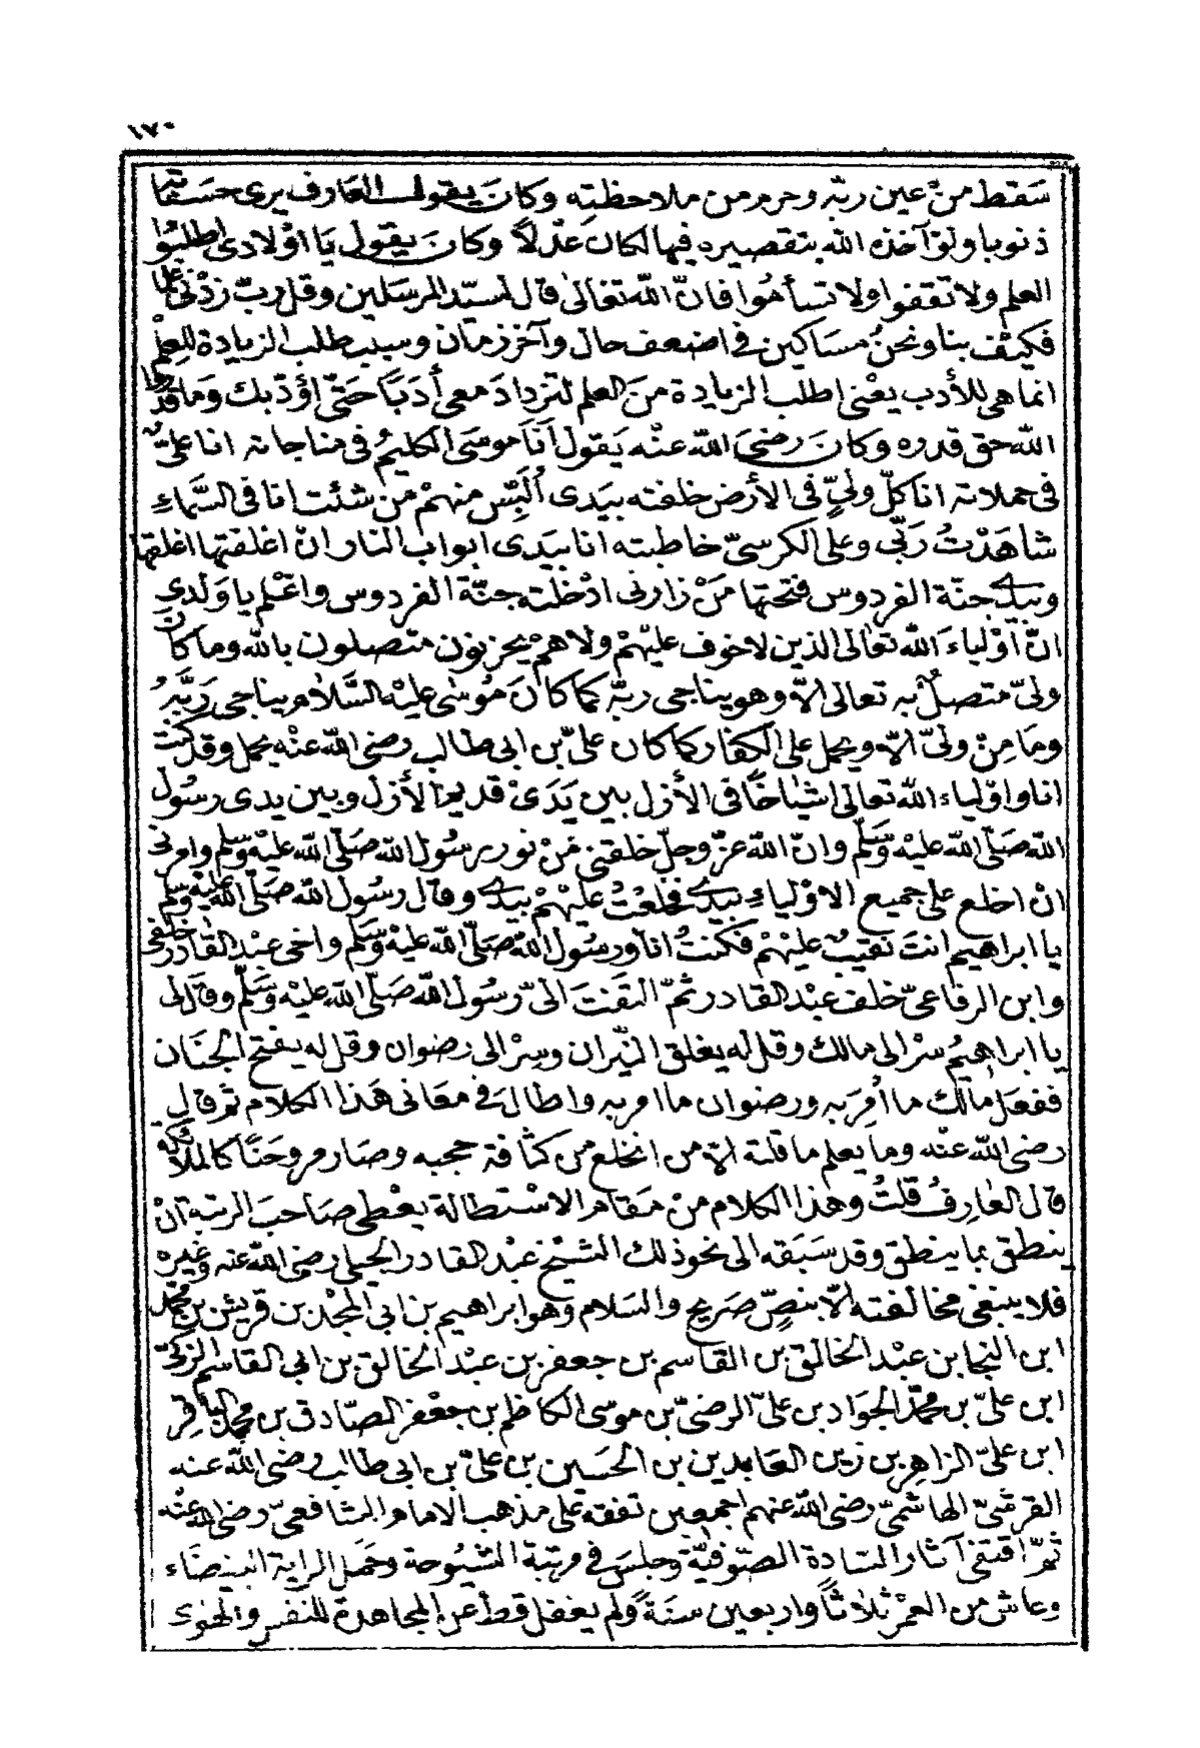 ١٧٠
سَقط منْ عين ربّه وحرم من ملاحظتِه وكانَ يقول العارف يرى حسَناته
ذنوبا ولوْ آخذه الله بتقصيره فيها لكان عدْلاً وكانَ يقول يَا أوْلادى اطلبُوا
العلم ولا تقفوا ولا تسأمُوا فانّ اللهَ تعَالى قال لسيّد المرسَلين وقل ربّ زدْنى علما
فكيْف بنا ونحنُ مسَاكين فى اضعف حال وآخر زمَان وسبب طلب الزيادة للعِلم
انما هى للأدب يعْنى اطلب الزيادة منَ العلم لتزدادَ معى أدَبًا حَتّى اؤدّبك وَما قدروا
الله حق قدره وكانَ رضىَ الله عنْه يَقول أنَا موسَى الكليمُ فى مناجاته انا علىٌّ
فى حملاته انا كلّ ولىٍّ فى الأرض خلعته بيَدى ألبِسُ منهمْ منْ شئت انا فى السَّماءِ
شاهَدْتُ رَبّى وعلى الكرسىّ خاطبته انا بيَدى ابواب النار انْ اغلقتها اغلقها
وبيدى جنّة الفردوس فتحتها مَنْ زارنى ادْخلته جنّة الفردوس واعْلم يا وَلدى
انّ أوْلياءَ الله تعَالى الذين لا خوف عليْهمْ ولا همْ يحزنون متصلون بالله وما كانَ
ولىّ متصلٌ به تعالى الاّ وهو يناجى ربّه كما كانَ مُوسٰى عليْه السَّلام يناجى رَبَّهُ
ومَا مِنْ ولىّ الاّ ويحمل على الكفار كما كان علىّ بن ابى طالب رضى الله عنْه يحمل وقد كنت
انا واوْلياء الله تعالى اشيَاخًا فى الأزل بين يَدَىْ قديم الأزل وبين يدى رسُول
الله صَلّى الله عليْه وَسَلّم وانّ الله عزّ وجلّ خلقنى مَنْ نور رسُول الله صَلّى الله عليْه وسَلّم وامرنى
انْ اخلع على جميع الاوْلياءِ بيدى فخلعْتُ عليْهمْ بيدى وقال رسُول الله صَلّى الله عليْه وسَلّم
يا ابراهيم انتَ نقيبٌ عليْهمْ فكنتُ انا ورسُول الله صَلّى الله عليْه وَسَلّم واخى عبْد القادر خلفى
وابن الرفاعىّ خلف عبْد القادر ثمّ التفتَ الىّ رسُول الله صَلّى الله عليْه وَسَلّم وقال لى
يا ابراهيمُ سرْ الى مالك وقل له يغلق النّيران وسِرْ الى رضوان وقل له يفتح الجنَان
ففعَل مالك ما أُمِرَ به ورضوان ما امر به واطالَ فى معَانى هَذا الكلام ثمّ قال
رضى الله عنْه وما يعلم ما قلته الاّ من انخلع من كثافة حجبه وصَار مروحَنًا كالملائكة
قال العَارفُ قلتُ وهَذا الكلام منْ مَقام الاسْتطالة يعْطى صَاحبَ الرتبة انْ
ينطق بما ينطق وقد سَبَقه الى نحو ذلك الشيْخ عبْد القادر الجيلى رضى الله عنه وغيره
فلا ينبغى مخالفته الاّ بنصّ صَريح والسَلام وهو ابراهيم بن ابى المجْد بن قريش بن محمّد
ابن النجا بن عبْد الخالق بن القاسم بن جعفر بن عبْد الخالق بن ابى القاسم الزكىّ
ابن علىّ بن محمّد الجوَاد بن علىّ الرضىّ بن موسى الكاظم بن جعْفر الصّادق بن محمّد الباقر
ابن علىّ الزاهِر بن زين العَابدين بن الحسَين بن علىّ بن ابى طالب رضى الله عنه
القرشىّ الهاشمىّ رضى الله عنهم اجمعين تفقه على مذهب الامام الشافعىّ رضى الله عنْه
ثمّ اقتفى آثار السَادة الصّوفيّة وجلسَ فى مرتبة الشيُوخة وحَمل الراية البيْضَاء
وعاش من العمْر ثلاثاً واربعين سنَةً ولم يغفل قط عن المجاهدة للنفس والهوى